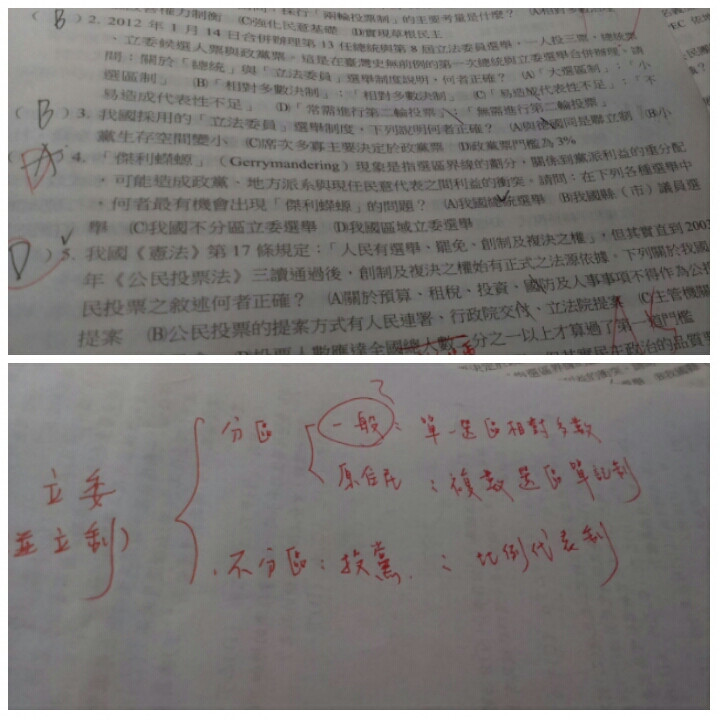 制衡 (C)強化民意基礎 (D)實現草根民主
(B) 2. 2012 年 1 月 14 日合併辦理第 13 任總統與第 8 屆立法委員選舉,一人投三票,總統票
、立委候選人票與政黨票,這是在臺灣史無前例的第一次總統與立委選舉合併辦理。請
問:關於「總統」與「立法委員」選舉制度說明,何者正確? (A)「大選區制」:「小
選區制」 (B)「相對多數決制」:「相對多數決制」 (C)「易造成代表性不足」:「不
易造成代表性不足」 (D)「常需進行第二輪投票」:「無需進行第二輪投票」
(B) 3. 我國採用的「立法委員」選舉制度,下列說明何者正確? (A)與德國同是聯立制 (B)小
黨生存空間變小 (C)席次多寡主要決定於政黨票 (D)政黨票門檻為 3%
4. 「傑利蠑螈」(Gerrymandering)現象是指選區界線的劃分,關係到黨派利益的重分配
,可能造成政黨、地方派系與現任民意代表之間利益的衝突。請問:在下列各種選舉中
,何者最有機會出現「傑利蠑螈」的問題? (A)我國總統選舉 (B)我國縣(市)議員選
舉 (C)我國不分區立委選舉 (D)我國區域立委選舉
(D) 5. 我國《憲法》第 17 條規定:「人民有選舉、罷免、創制及複決之權」,但其實直到 2003
年《公民投票法》三讀通過後,創制及複決之權始有正式之法源依據。下列關於我國
民投票之敘述何者正確? (A)關於預算、租稅、投資、國防及人事事項不得作為公投
提案 (B)公民投票的提案方式有人民連署、行政院交付、立法院提案 (C)主管機關
投票人數應達全國總人數二分之一以上才算過了第一道門檻
分區
一般:單一選區相對多數
原住民:複數選區單記制
立委
並立制)
不分區:投黨:比例代表制